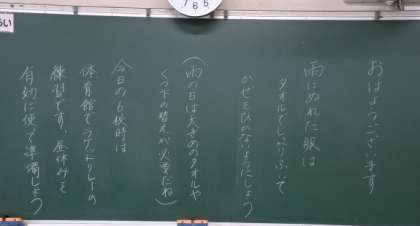 おはようございます
雨にぬれた服は
タオルでしっかりふいて
かぜをひかないようにしよう
(雨の日は大きめのタオルや
くつ下の替えが必要だね)
今日の6校時は
体育館でラケットリレーの
練習です。昼休みを
有効に使って準備しよう
7 6 5